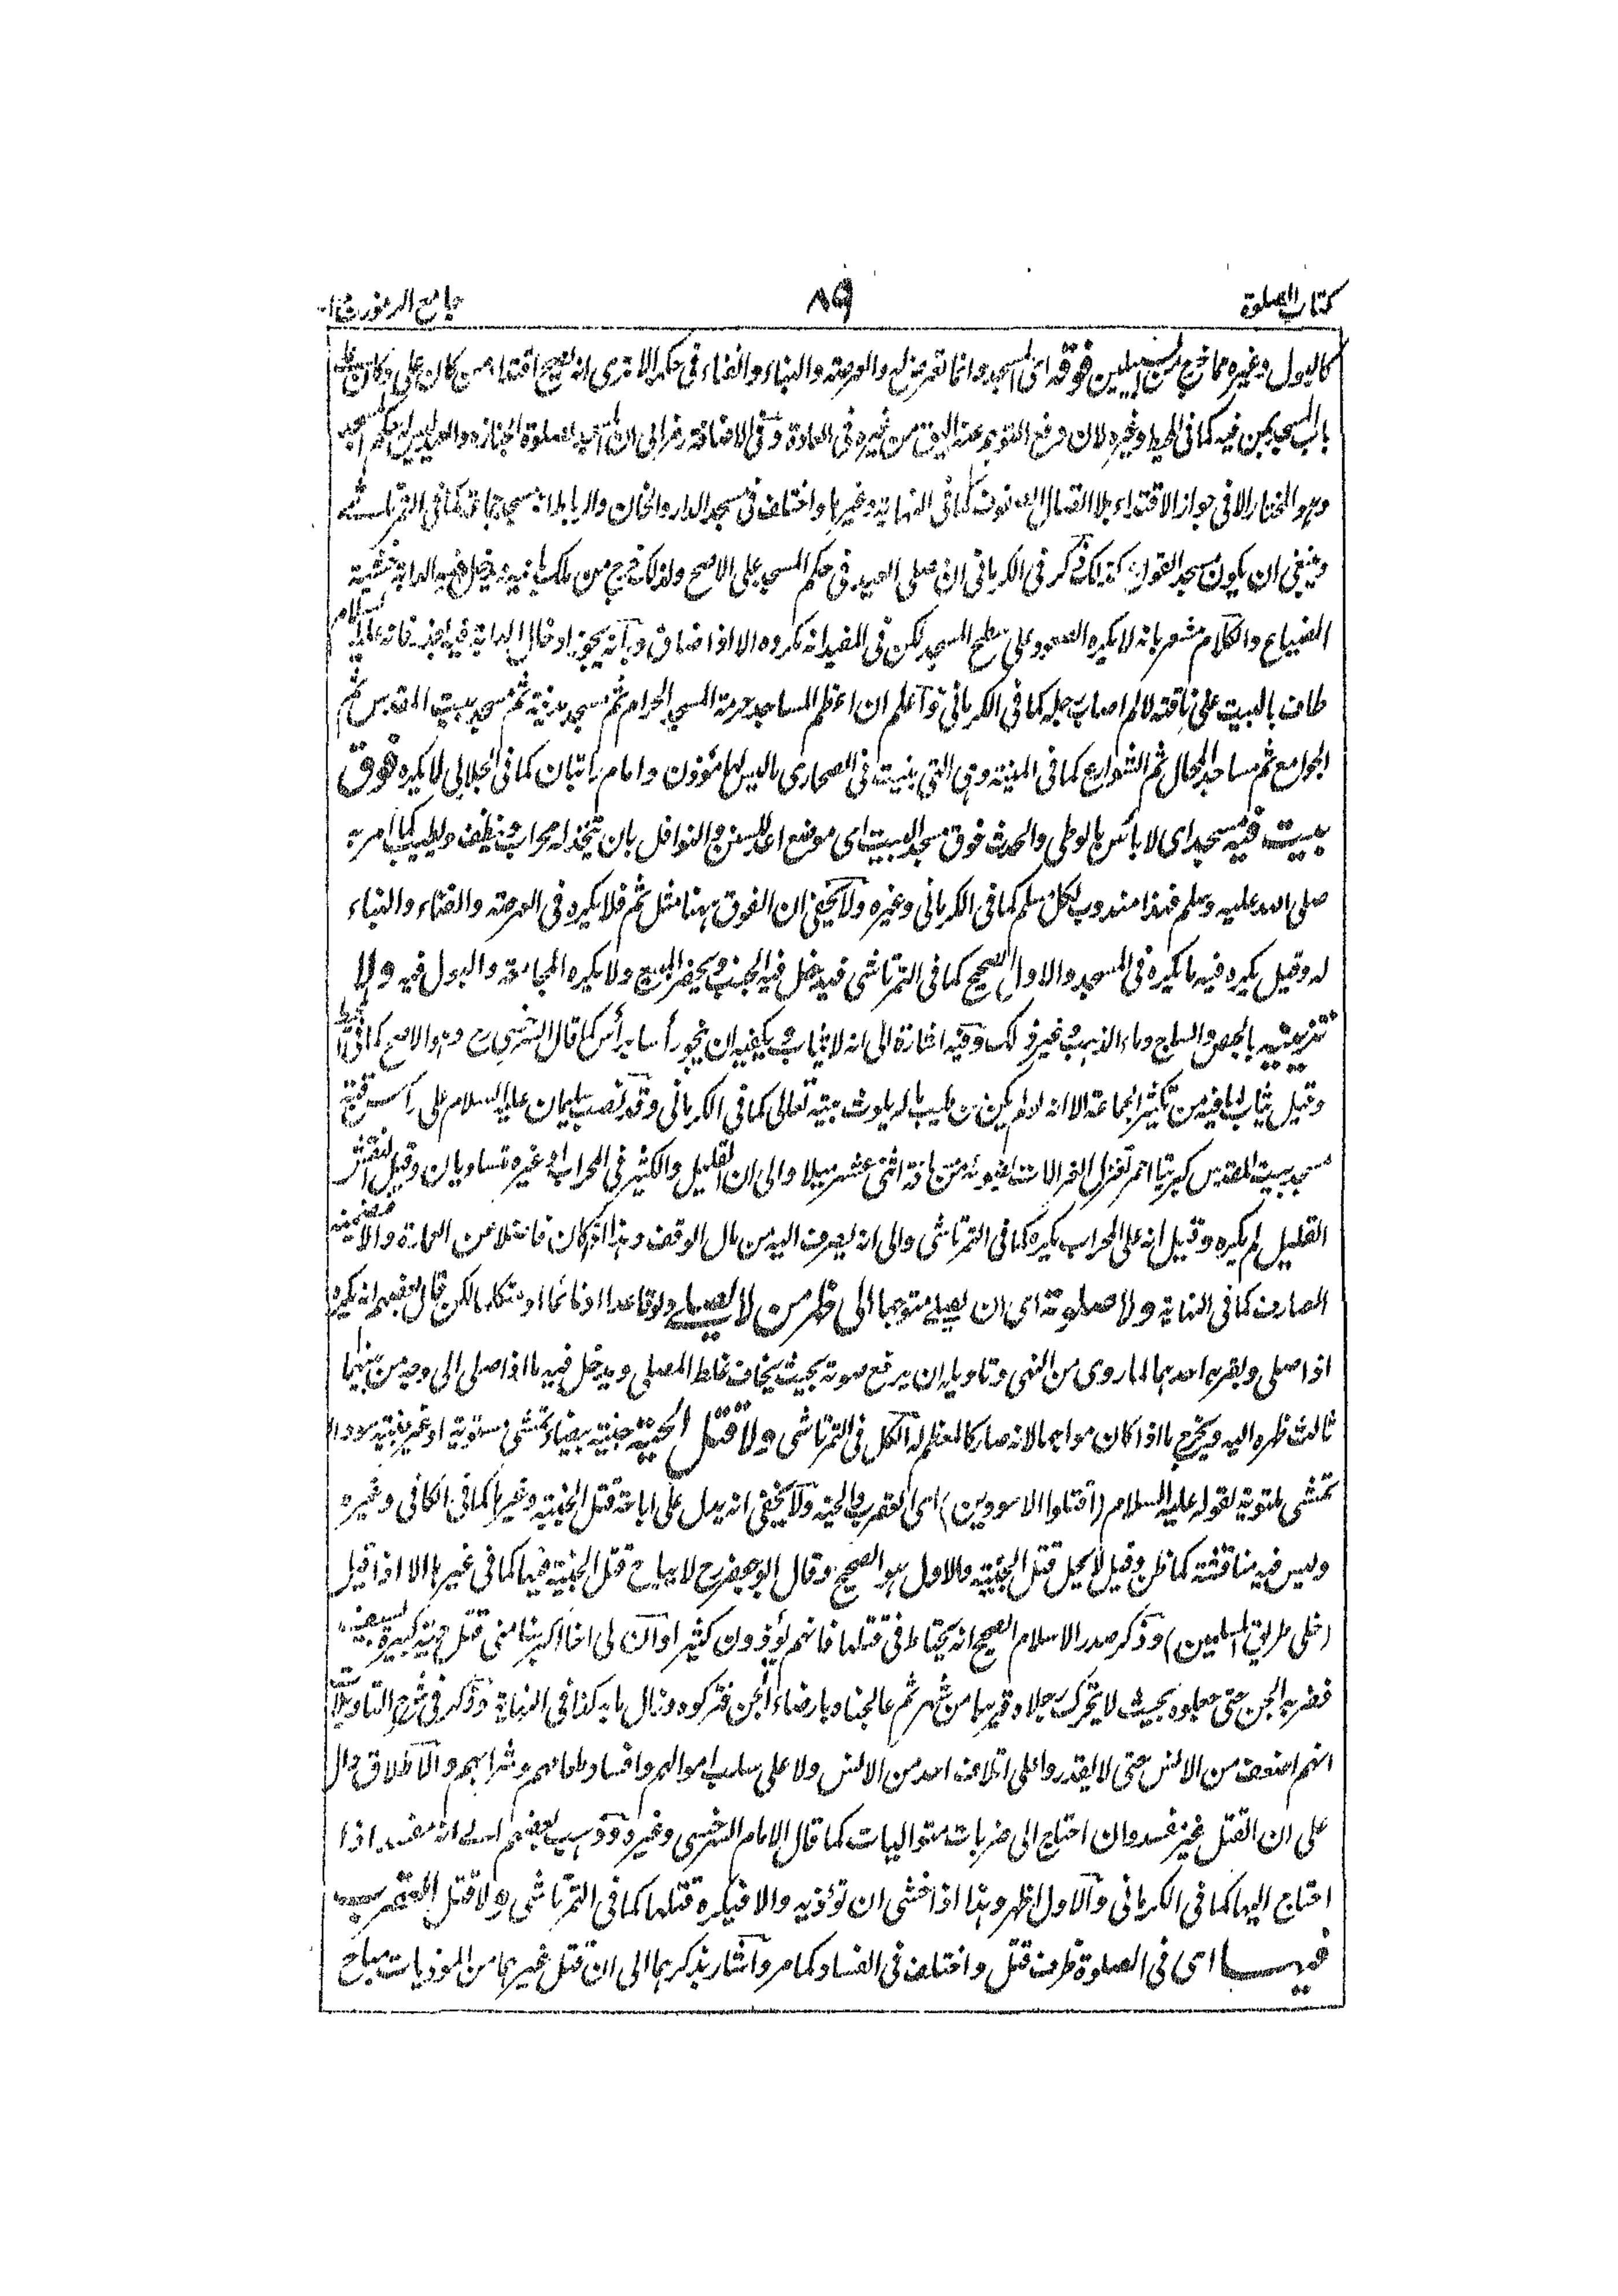 كتاب الصلوة
٨٩
جامع الرموز
كالبول وغيره مما خرج من السبيلين فوقه اى المسجد وانما تعرض له والعرصة والبناء والفناء فى حكمه الا ترى انه يصح اقتداء من كان على
بالمسجد بمن فيه كما فى المحيط وغيره لان رفع التوهم عنه اليق من غيره فى العادة وفى الاضافة رمز الى ان المتخذ لصلوة الجنازة والعيد ليس له حكم المسجد
وهو المختار الا فى جواز الاقتداء بلا اتصال الصفوف كما فى النهاية وغيرها واختلف فى مسجد الدار والخان والرباط انه مسجد جماعة كما فى التمرتاشى
وينبغى ان يكون مسجد كذلك ذكر فى الكرمانى ان مصلى العيد فى حكم المسجد على الاصح ولذلك خرج من ملك بانيه فيه الدابة خشية
الضياع والكلام مشعر بانه لا يكره الصعود على سطح المسجد لكن فى المفيد انه مكروه الا اذا ضاق وبانه يجوز ادخال الدابة فيه لعذر فانه عليه السلام
طاف بالبيت على ناقته لالم اصاب رجله كما فى الكرمانى واعلم ان اعظم المساجد حرمة المسجد الحرام ثم مسجد مدينة ثم مسجد بيت المقدس ثم
الجوامع ثم مساجد المحال ثم الشوارع كما فى المنية وهى التى بنيت فى الصحارى ما ليس لها مؤذن وامام راتبان كما فى الجلابى لا يكره فوق
بيت فيه مسجد اى لا باس بالوطى والحدث فوق مسجد البيت اى موضع اعد للسنن والنوافل بان يتخذ له محراب وينظف ويطيب كما امر به
صلى الله عليه وسلم فهذا مندوب لكل مسلم كما فى الكرمانى وغيره ولا يخفى ان الفوق ههنا مثل ثم فلا يكره فى العرصة والفناء والبناء
له وقيل يكره فيه ما يكره فى المسجد والاول الصحيح كما فى التمرتاشى فيدخل فيه الجنب ويحضر المبيع ولا يكره المجامعة والبول فيه ولا
تزيينه بالجص والساج وماء الذهب وغير ذلك وفيه اشارة الى انه لا يثاب ويكفيه ان ينجو رأسا برأس كما قال السرخسى رح وهو الاصح كما فى المحيط
وقيل يثاب لما فيه من تكثير الجماعة الا انه لو لم يكن من طيب ماله يلوث بيته تعالى كما فى الكرمانى وقد نصب سليمان عليه السلام على رأس قبة
مسجد بيت المقدس كبريتا احمر تغزل الغزالات بضوئه من مسافة اثنى عشر ميلا والى ان القليل والكثير فى المحراب وغيره متساويان وقيل النقش
القليل لم يكره وقيل انه على المحراب يكره كما فى التمرتاشى والى انه لا يصرف اليه من مال الوقف وهذا اذا كان فاضلا عن العمارة والا
المصارف كما فى النهاية ولا صلوته اى ان يصلى متوجها الى ظهر من لا يصلى ولو قاعدا او نائما او متكلما لكن قال بعضهم انه يكره
اذا صلى وبقربه احدهما لما روى من النهى وتاويله ان يرفع صوته بحيث يخاف غلط المصلى ويدخل فيه ما اذا صلى الى وجه من بينهما
ثالث ظهره اليه ويخرج ما اذا كان مواجها لانه صار كالمعظم له الكل فى التمرتاشى ولا قتل الحية جنية بيضاء تمشى مستوية او غير جنية سوداء
تمشى ملتوية لقوله عليه السلام (اقتلوا الاسودين) اى العقرب والحية ولا يخفى انه يدل على اباحة قتل الجنية وغيرها كما فى الكافى وغيره
وليس فيه مناقشة كما ظن وقيل لا يحل قتل الجنية والاول هو الصحيح وقال ابو جعفر رح لا يباح قتل الجنية فيها كما فى غيرها الا اذا قيل
(خلى طريق المسلمين) وذكر صدر الاسلام الصحيح انه يحتاط فى قتلها فانهم يؤذون كثيرا وان لى اخا اكبر سنا منى قتل حية كبيرة بسيف
فضربه الجن حتى جعلوه بحيث لا يتحرك رجلاه قريبا من شهر ثم عالجناه بارضاء الجن فتركوه وزال ما به كذا فى النهاية وذكر فى شرح التاويلات
انهم اضعف من الانس حتى لا يقدروا على اتلاف احد من الانس ولا على سلب اموالهم وافساد طعامهم وشرابهم والاطلاق دال
على ان القتل غير مفسد وان احتاج الى ضربات متواليات كما قال الامام السرخسى وغيره وذهب بعضهم الى انه مفسد اذا
احتاج اليها كما فى الكرمانى والاول اظهر وهذا اذا خشى ان تؤذيه والا فيكره قتلها كما فى التمرتاشى ولا قتل العقرب
فيها اى فى الصلوة ظرف قتل واختلف فى الفساد كما مر واشار بذكرهما الى ان قتل غيرهما من الموذيات مباح